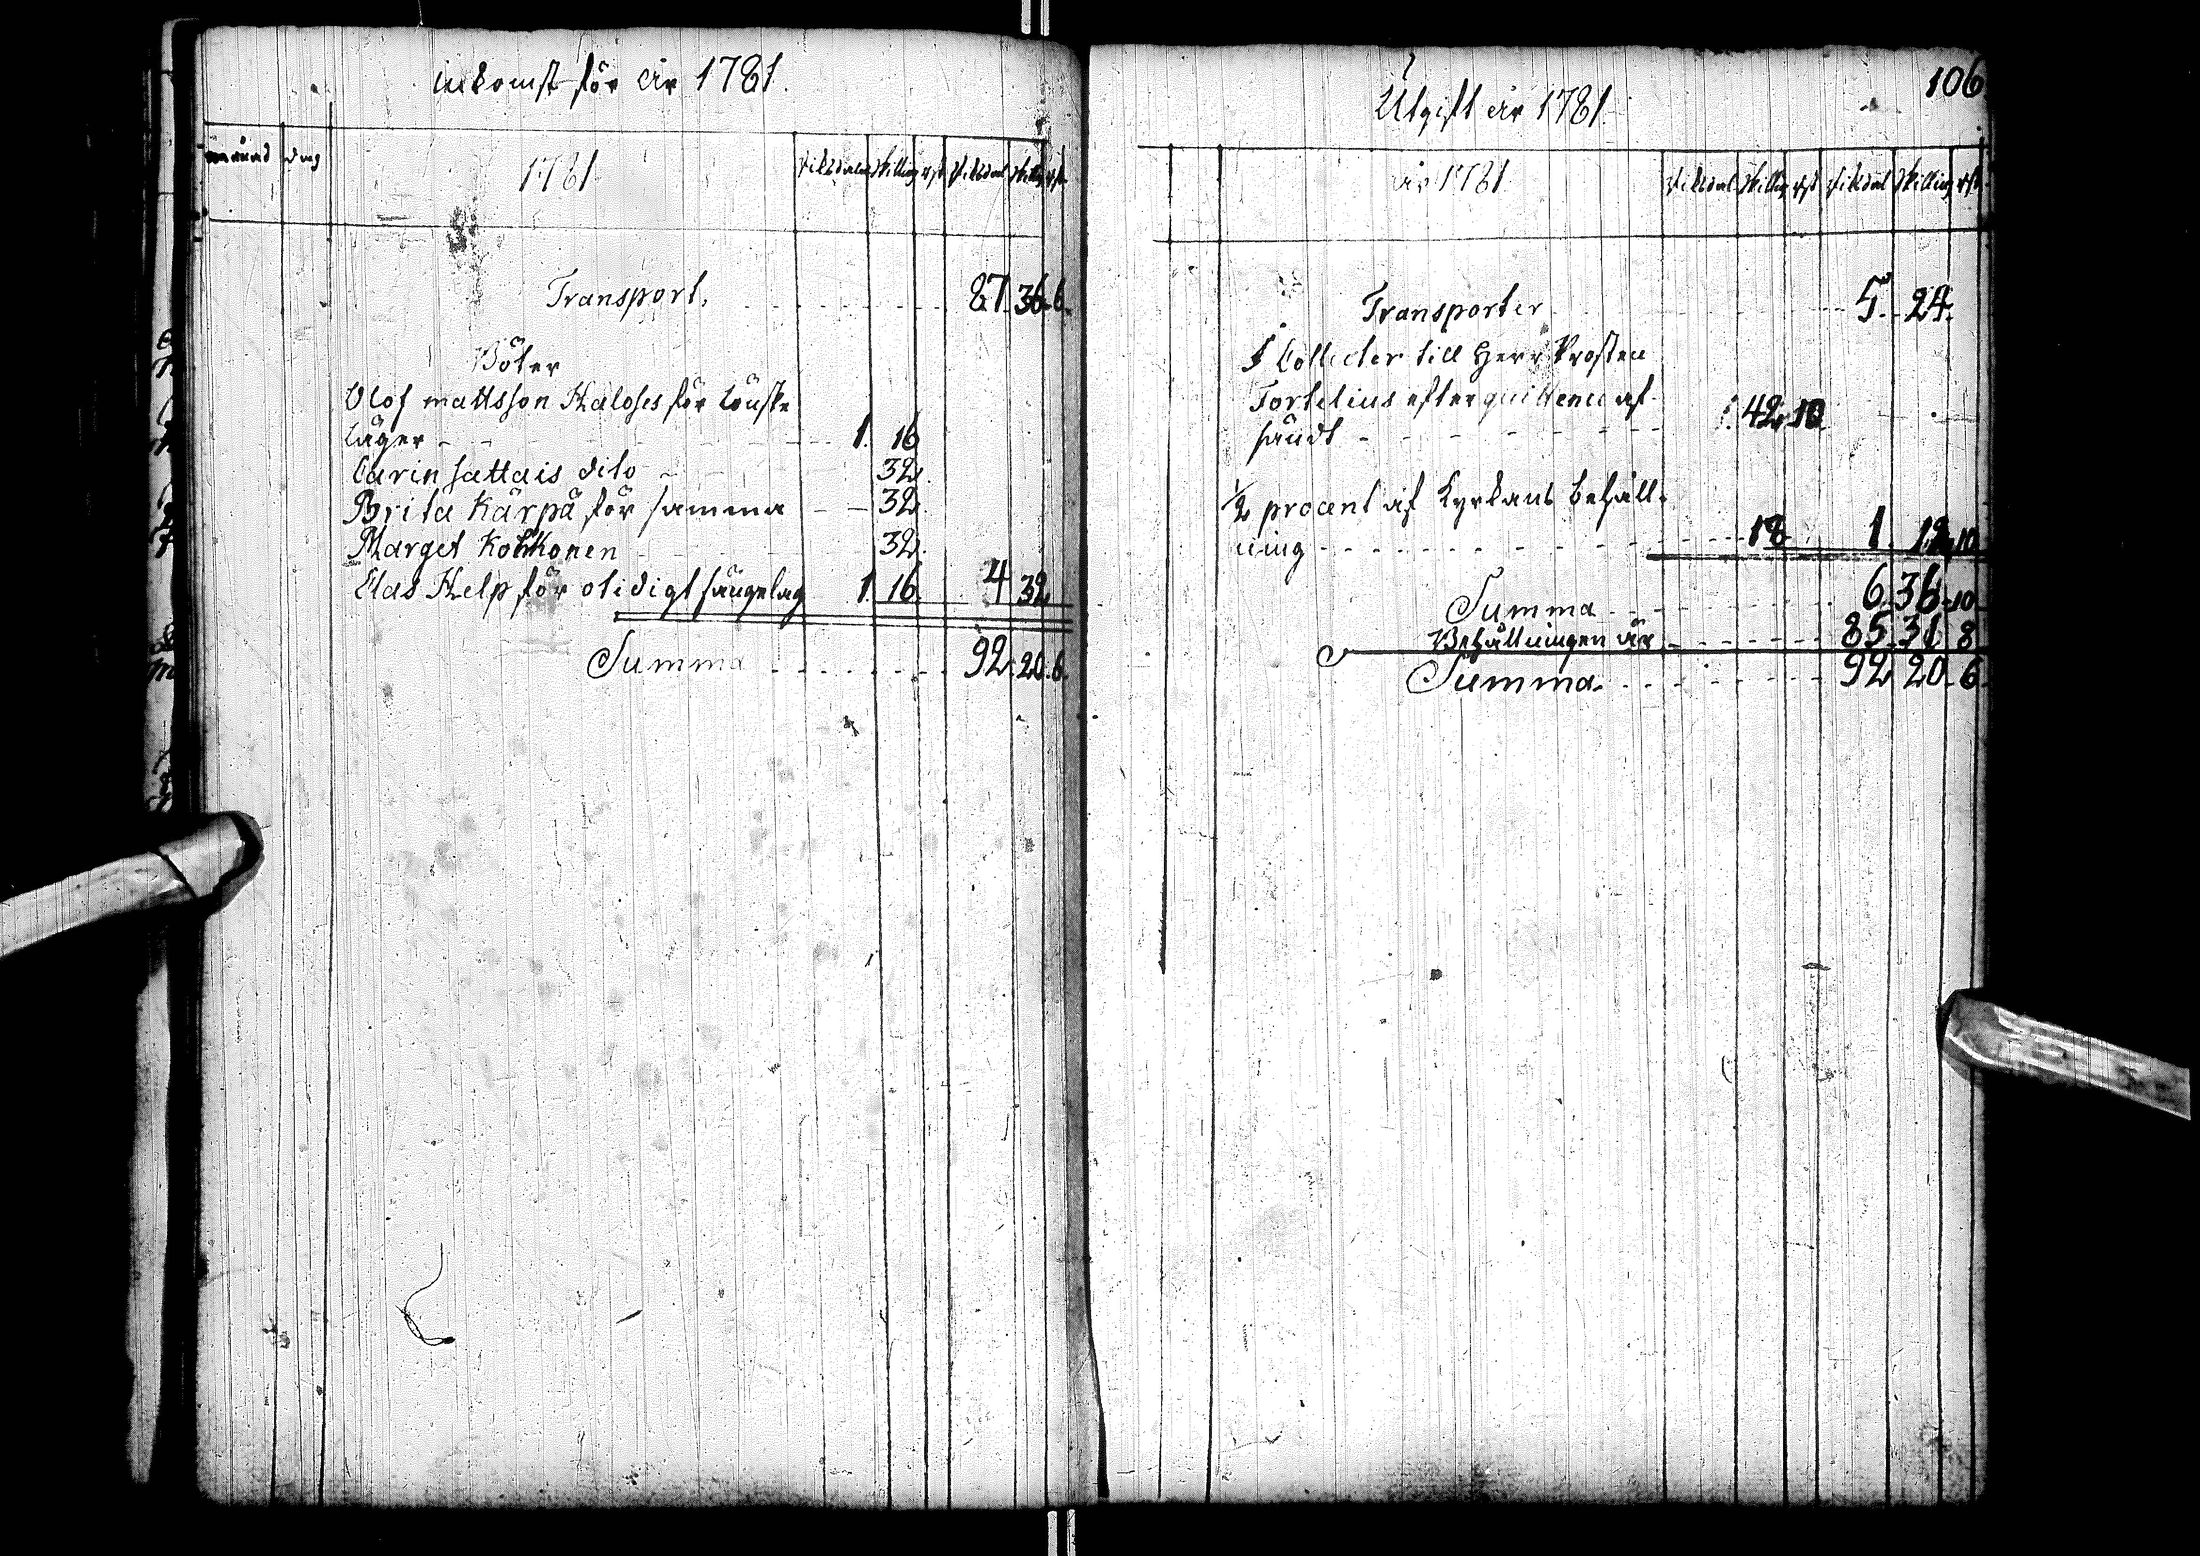 inkomst för år 1781.
månad dag 1781. Riksdaler Skilling rst Riksdal Skilling rst
Transport. 87. 36. 6.
Böter
Olof mattsson Kaloses för Löuske
läger 1. 16
Carin Sattais dito 32.
Brita Kärpä för samma 32.
Marget Kohkonen 32.
Clas Kelp för otidigt sängelag 1. 16. 4 32
Summa 92. 20. 6.
106
Utgift år 1781.
år 1781 Riksdal Skilling rst Riksdal Skilling rst
Transporter 5. 24.
5 Collecter till Herr Prosten
Fortelius efter quittence af
sändt 1. 42. 10
1/2 procent af Kyrkans behåll-
ning 18 1. 12. 10
Summa 6. 36. 10
Behållningen är 85. 31 8
Summa 92 20. 6.